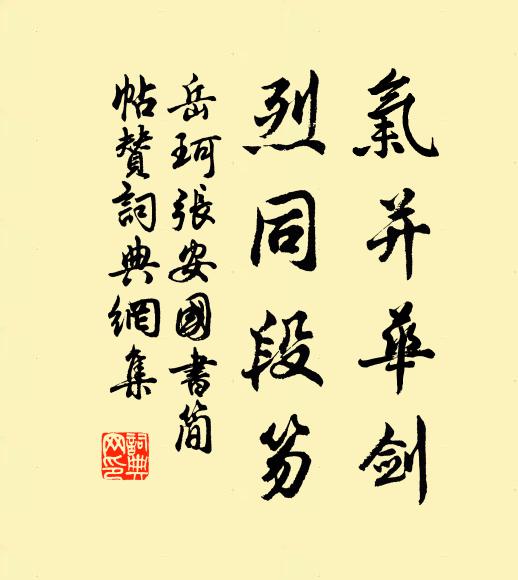 氣并華劍
烈同段笏
岳珂張安國書簡
帖贊詞典網集
詞典網印